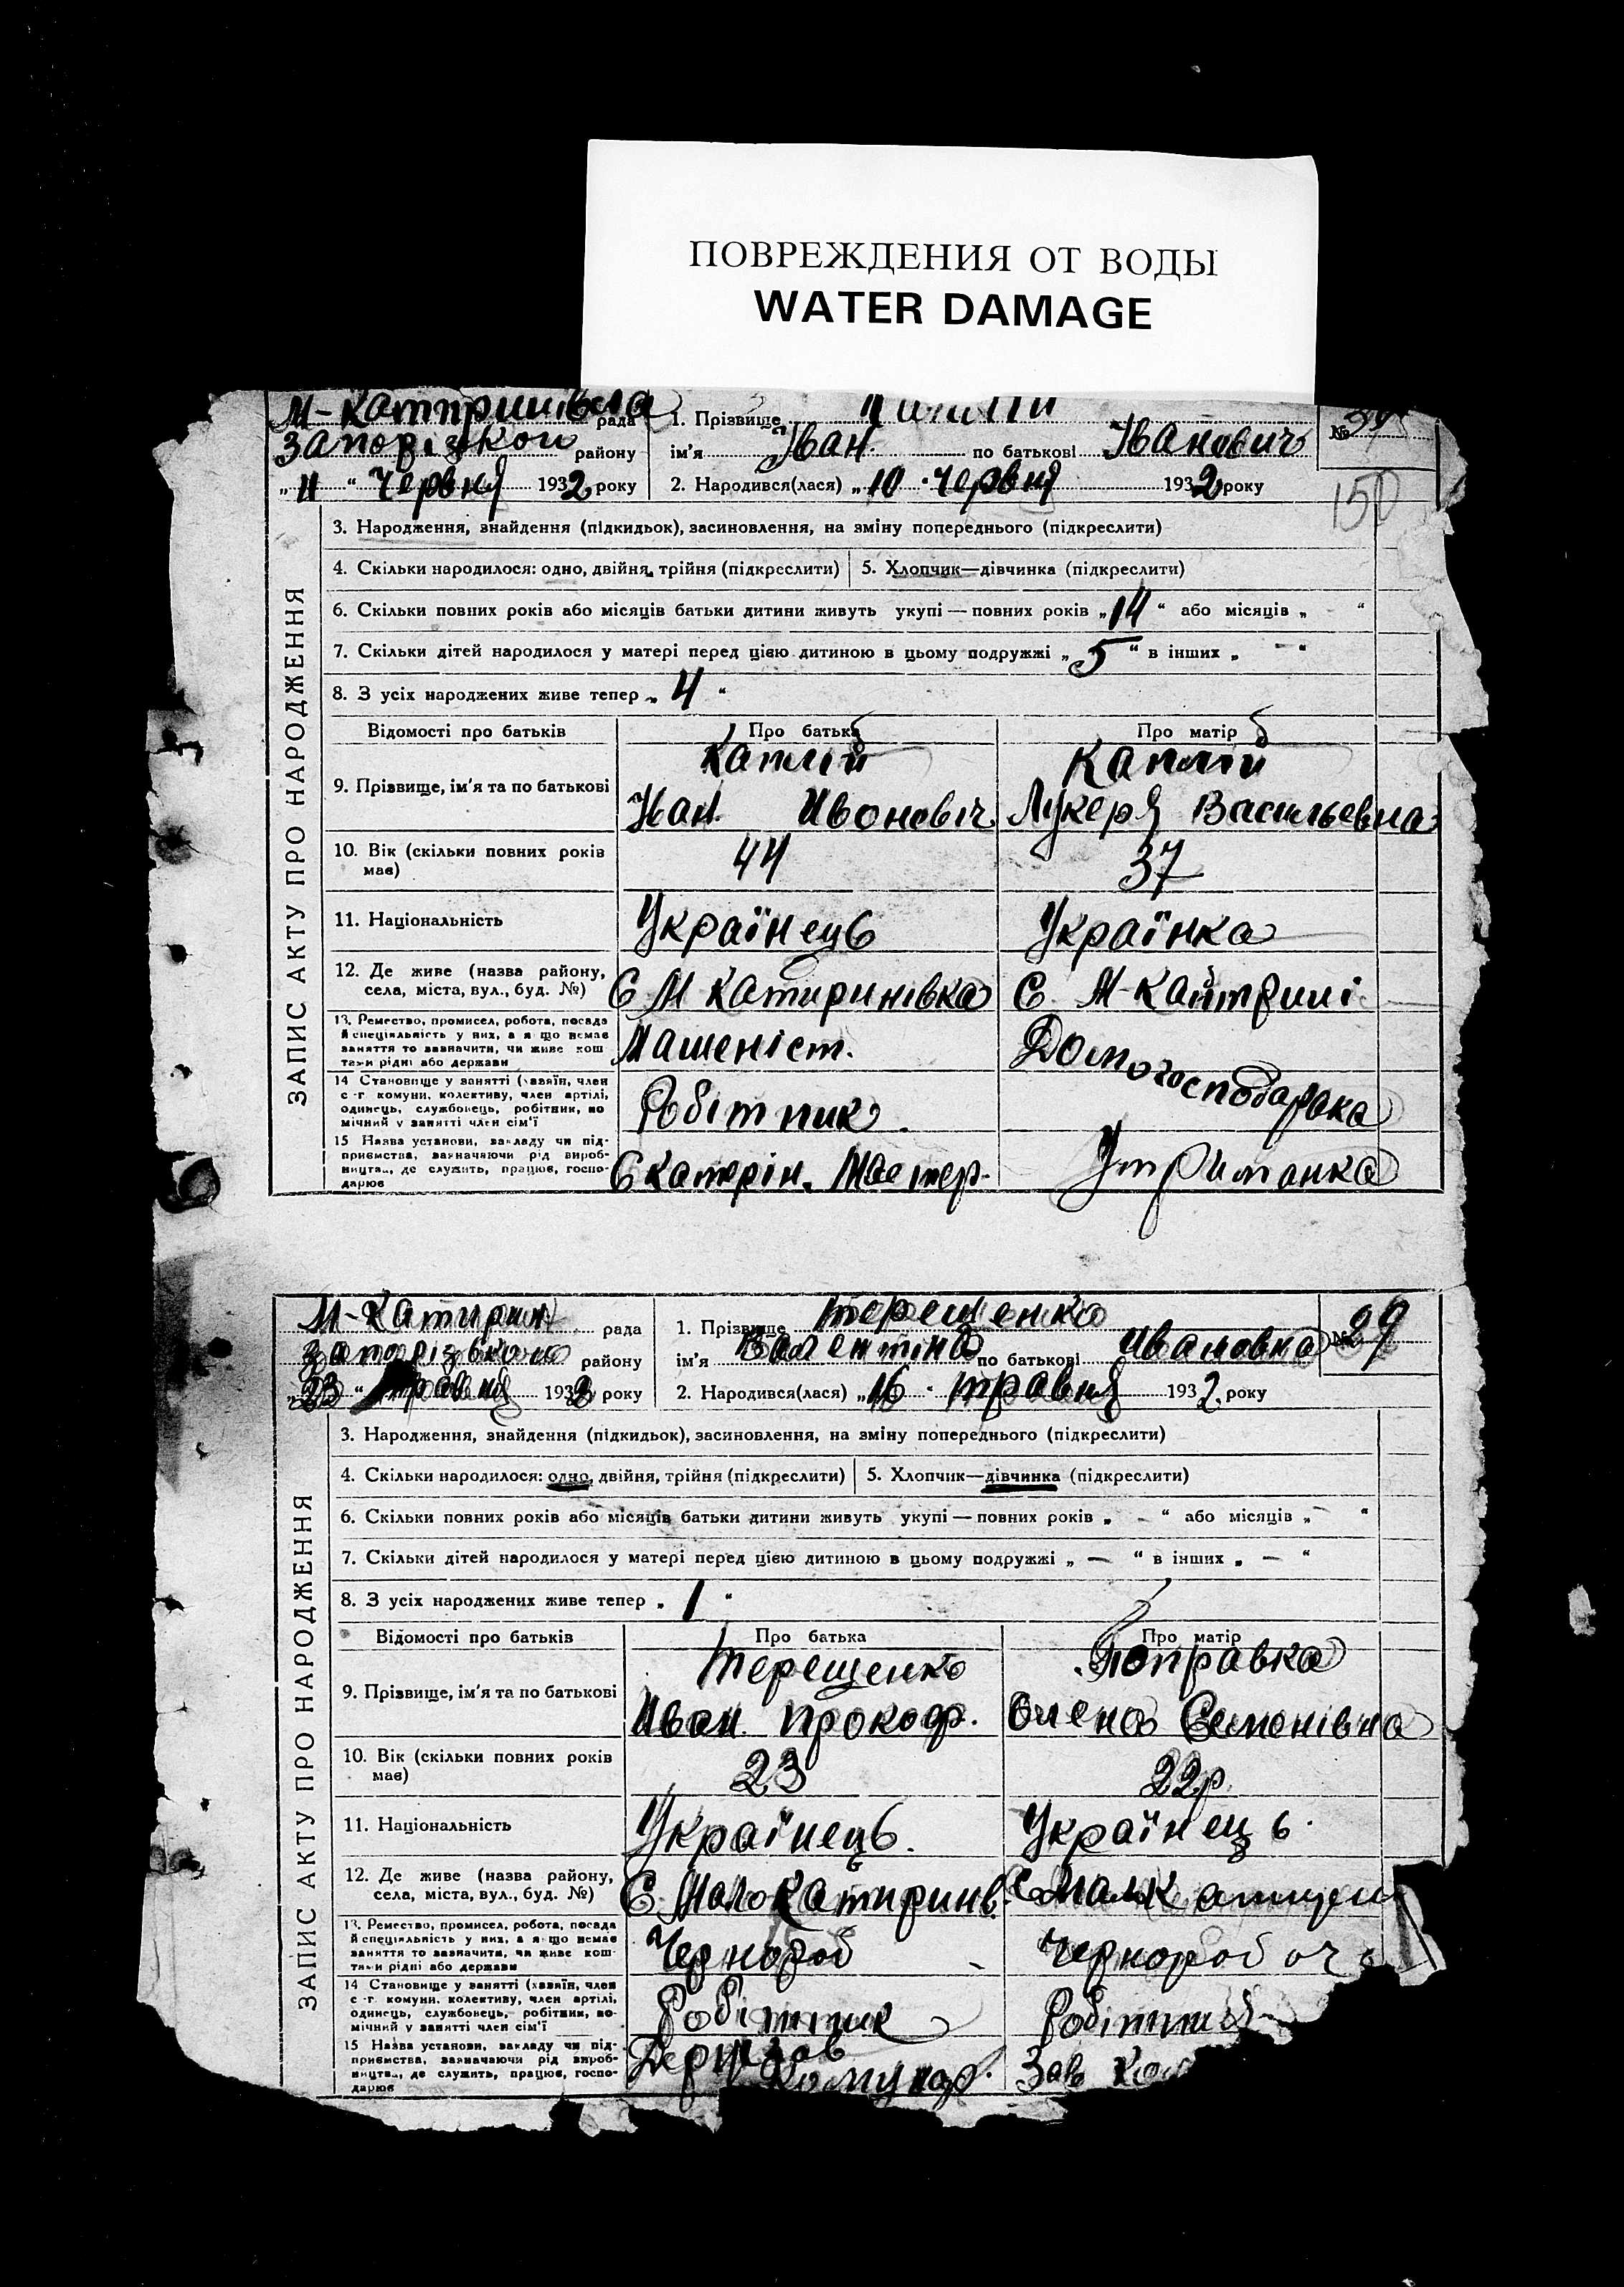 ПОВРЕЖДЕНИЯ ОТ ВОДЫ
WATER DAMAGE
М-Катиринівська рада
Запорізького району
„11“ Червня 1932 року
1. Прізвище
ім'я Іван по батькові Іванович
2. Народився(лася) „10“ Червня 1932 року
№
150
ЗАПИС АКТУ ПРО НАРОДЖЕННЯ
3. Народження, знайдення (підкидьок), засиновлення, на зміну попереднього (підкреслити)
4. Скільки народилося: одно, двійня, трійня (підкреслити)
5. Хлопчик—дівчинка (підкреслити)
6. Скільки повних років або місяців батьки дитини живуть укупі — повних років „14“ або місяців „ “
7. Скільки дітей народилося у матері перед цією дитиною в цьому подружжі „5“ в інших „ — “
8. З усіх народжених живе тепер „4“
Відомості про батьків
Про батька
Про матір
9. Прізвище, ім'я та по батькові
Каплій
Каплій
Іван Ивонович
Лукеря Васильевна
10. Вік (скільки повних років має)
44
37
11. Національність
Українець
Українка
12. Де живе (назва району,
села, міста, вул., буд. №)
С М Катиринівка
С. М-Катирині
13. Ремество, промисел, робота, посада
й спеціяльність у них, а якщо немає
заняття то зазначити, чи живе кош
тами рідні або держави
Машеніст.
Домогосподарка
14 Становище у занятті (хазяїн, член
с -г комуни, колективу, член артілі,
одинець, службовець, робітник, по
мічний у занятті член сім'ї
Робітник
15 Назва установи, закладу чи під-
приємства, зазначаючи рід вироб-
ництва, де служить, працює, госпо-
дарює
Екатерін. Мастер.
Утриманка
М-Катирин рада
Запорізького району
„23“ травня 1932 року
1. Прізвище Терещенко
ім'я Валентіна по батькові Ивановка
2. Народився(лася) „16“ травня 1932 року
№ 29
ЗАПИС АКТУ ПРО НАРОДЖЕННЯ
3. Народження, знайдення (підкидьок), засиновлення, на зміну попереднього (підкреслити)
4. Скільки народилося: одно, двійня, трійня (підкреслити)
5. Хлопчик—дівчинка (підкреслити)
6. Скільки повних років або місяців батьки дитини живуть укупі — повних років „ — “ або місяців „ — “
7. Скільки дітей народилося у матері перед цією дитиною в цьому подружжі „ — “ в інших „ — “
8. З усіх народжених живе тепер „1“
Відомості про батьків
Про батька
Про матір
9. Прізвище, ім'я та по батькові
Терещенко
Поправка
Иван Прокоф.
Олена Семонівна
10. Вік (скільки повних років має)
23
22р.
11. Національність
Українець.
Українець.
12. Де живе (назва району,
села, міста, вул., буд. №)
С. МалоКатиринв.
13. Ремество, промисел, робота, посада
й спеціяльність у них, а якщо немає
заняття то зазначити, чи живе кош-
тами рідні або держави
Чернороб
Чернороб
14 Становище у занятті (хазяїн, член
с -г комуни, колективу, член артілі,
одинець, службовець, робітник, по-
мічний у занятті член сім'ї
Робітник
15 Назва установи, закладу чи під-
приємства, зазначаючи рід вироб-
ництва, де служить, працює, госпо-
дарює
Держзав
Комунар.
Зав